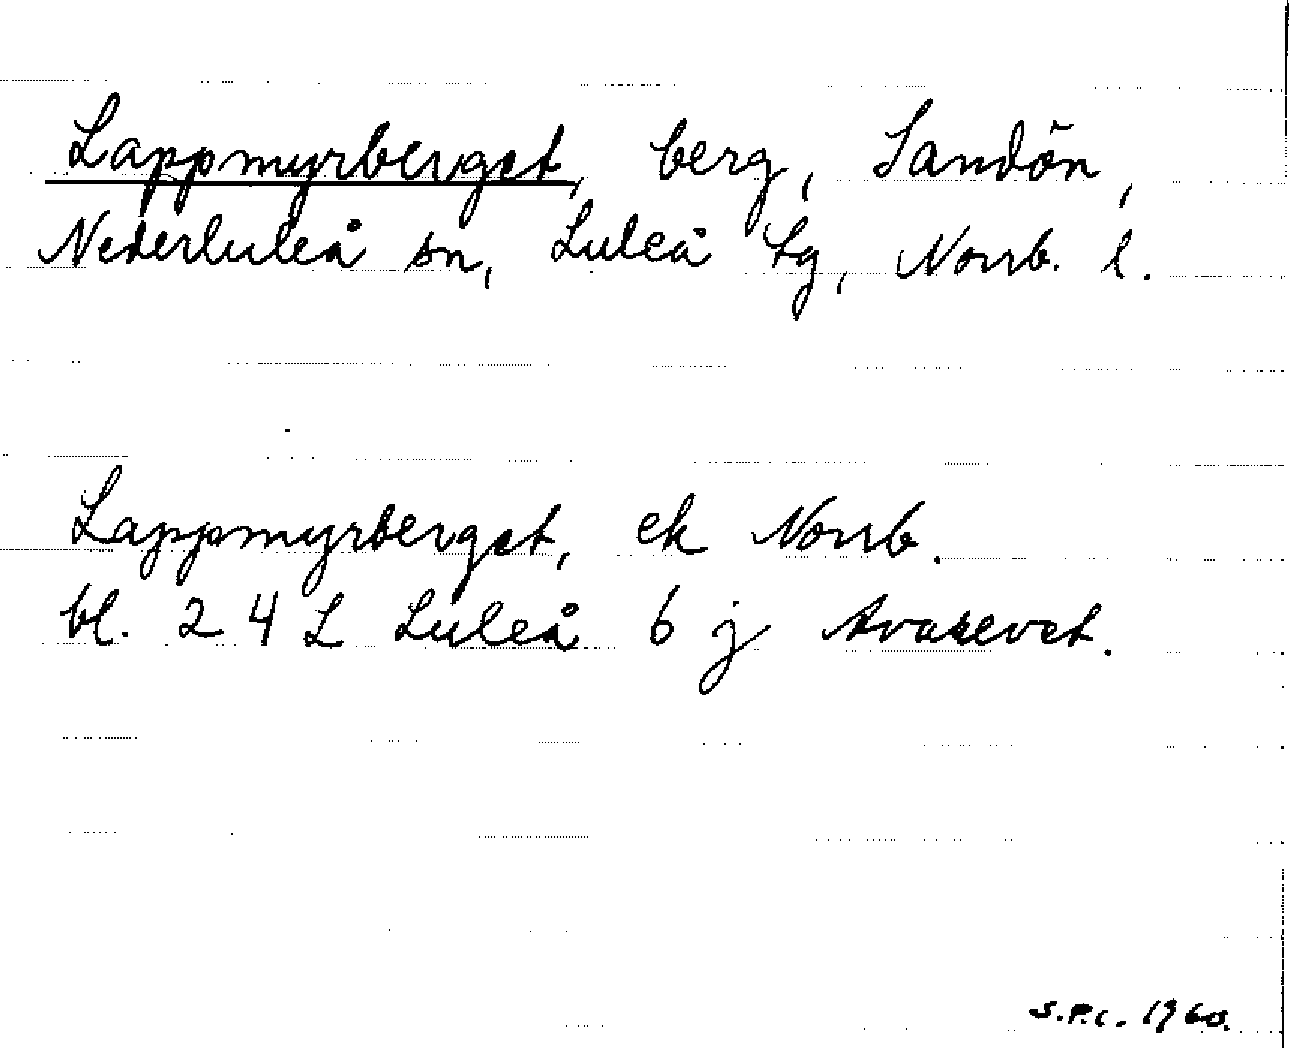 Lappmyrberget, berg, Sandön,
Nederluleå sn, Luleå tg, Norrb. l.
Lappmyrberget, ek Norrb.
bl. 24 L Luleå 6 j
S.P.C. 1960.